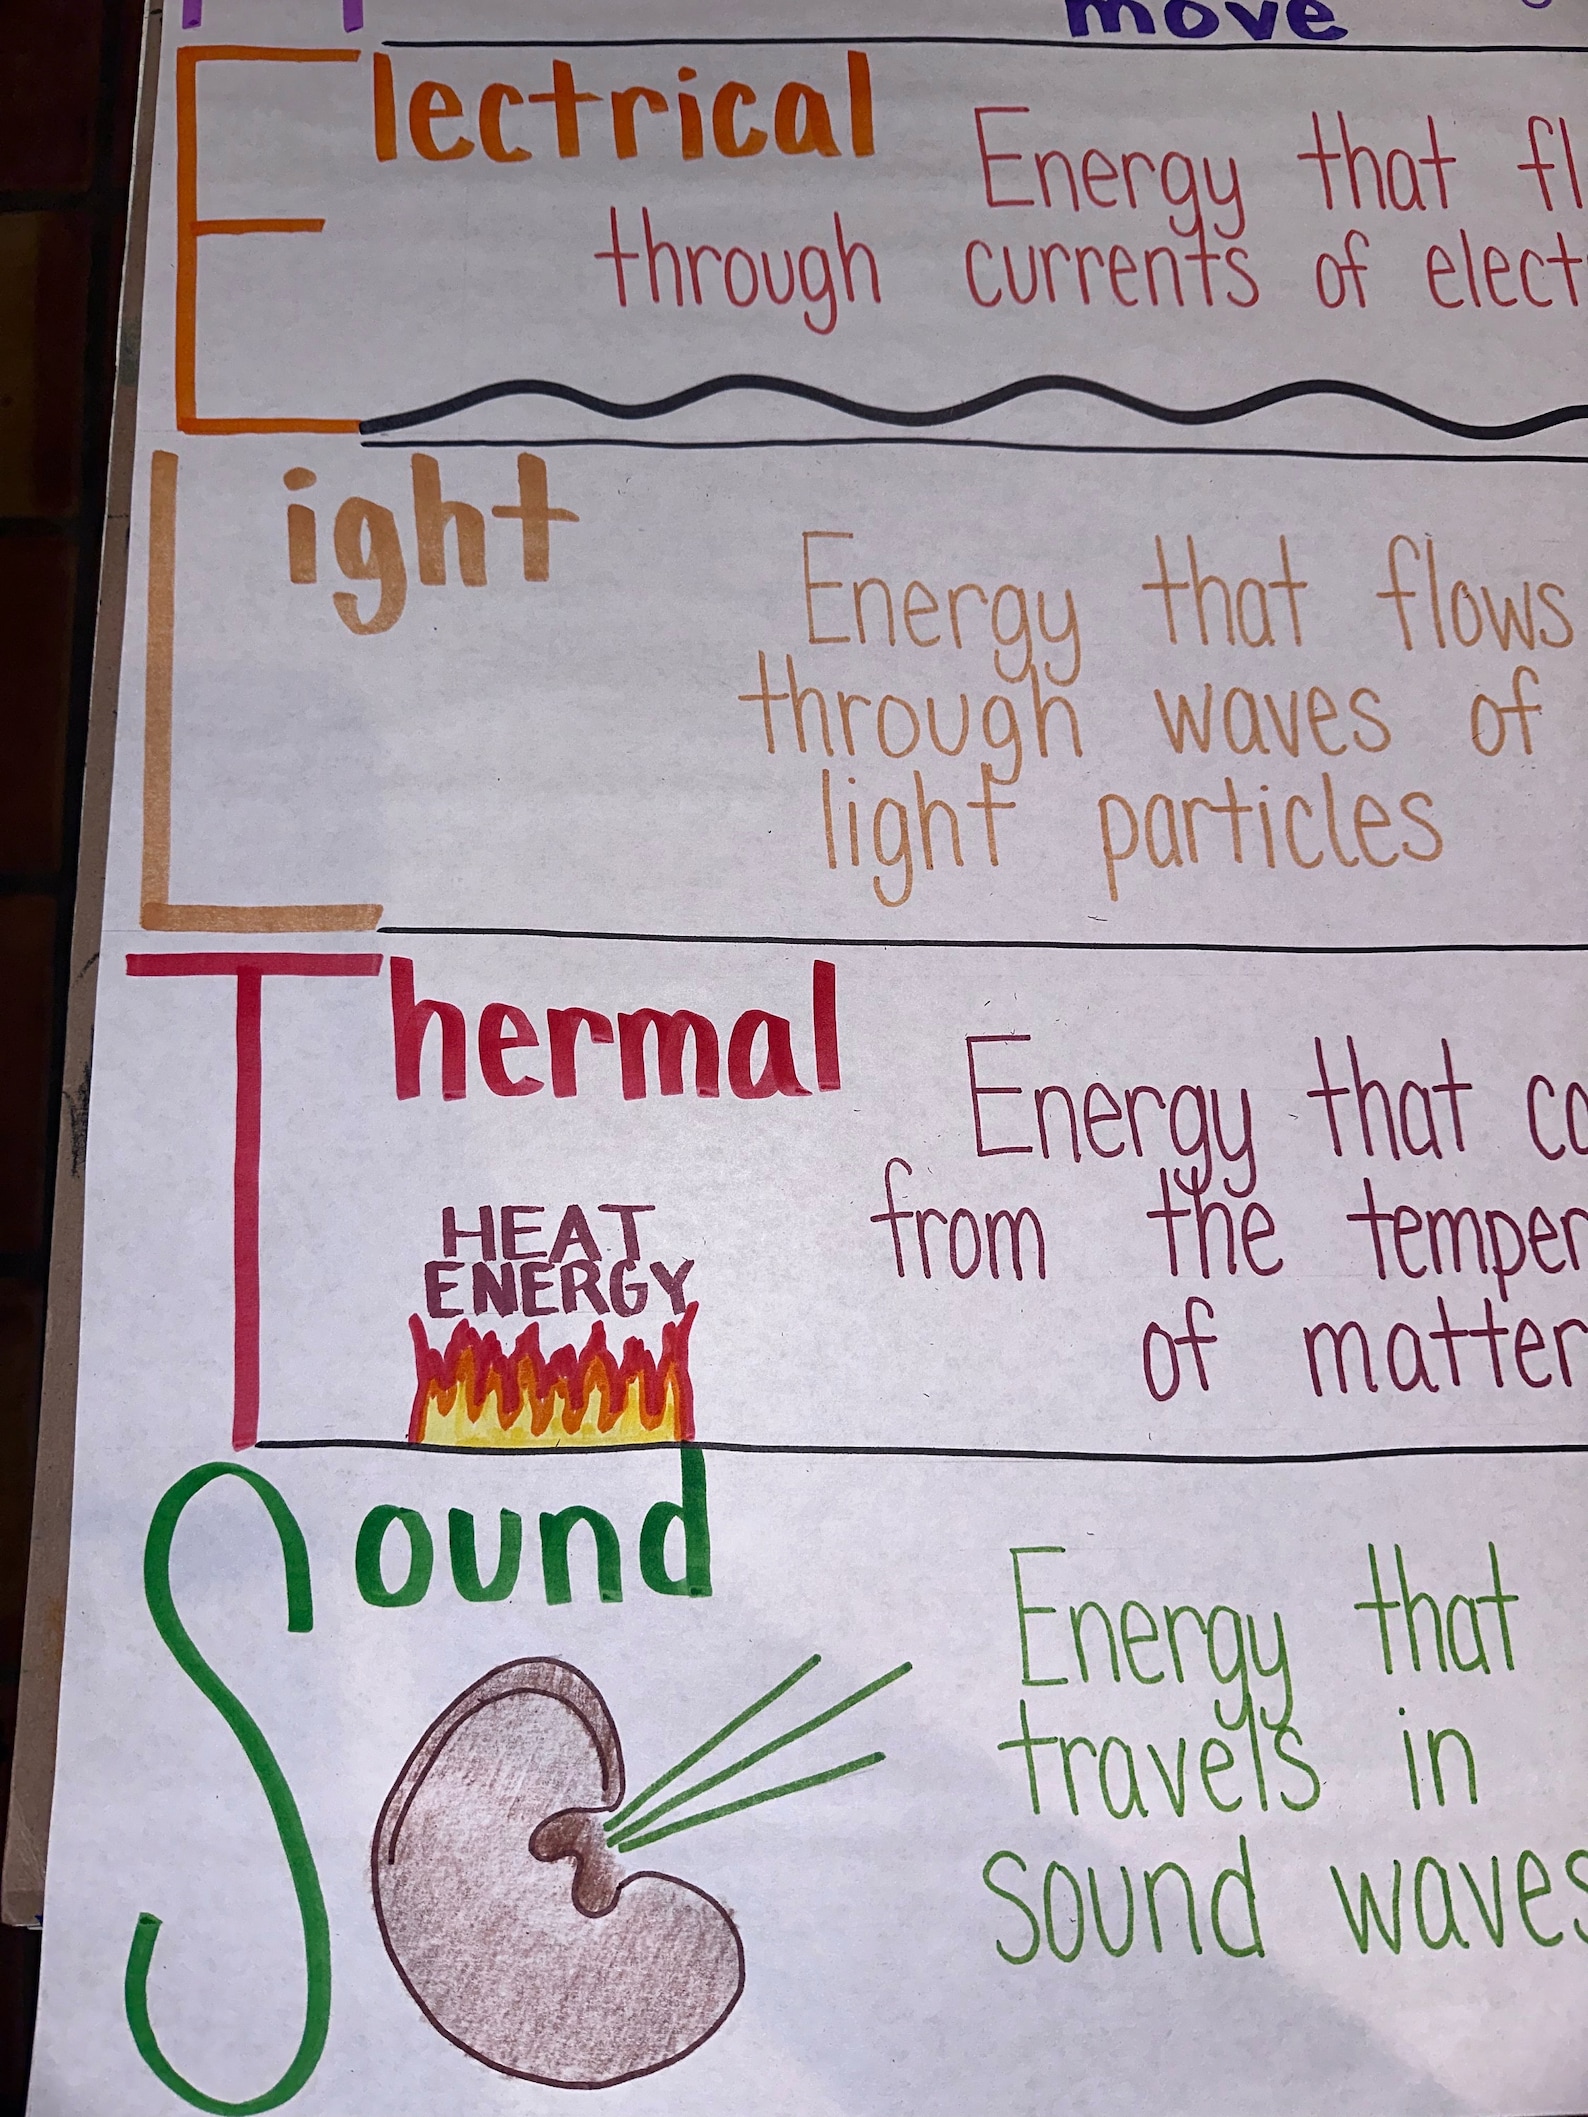 move
Electrical
Energy that fl
through currents of elect
Light
Energy that flows
through waves of
light particles
Thermal
Energy that co
from the temper
of matter
HEAT
ENERGY
Sound
Energy that
travels in
sound waves